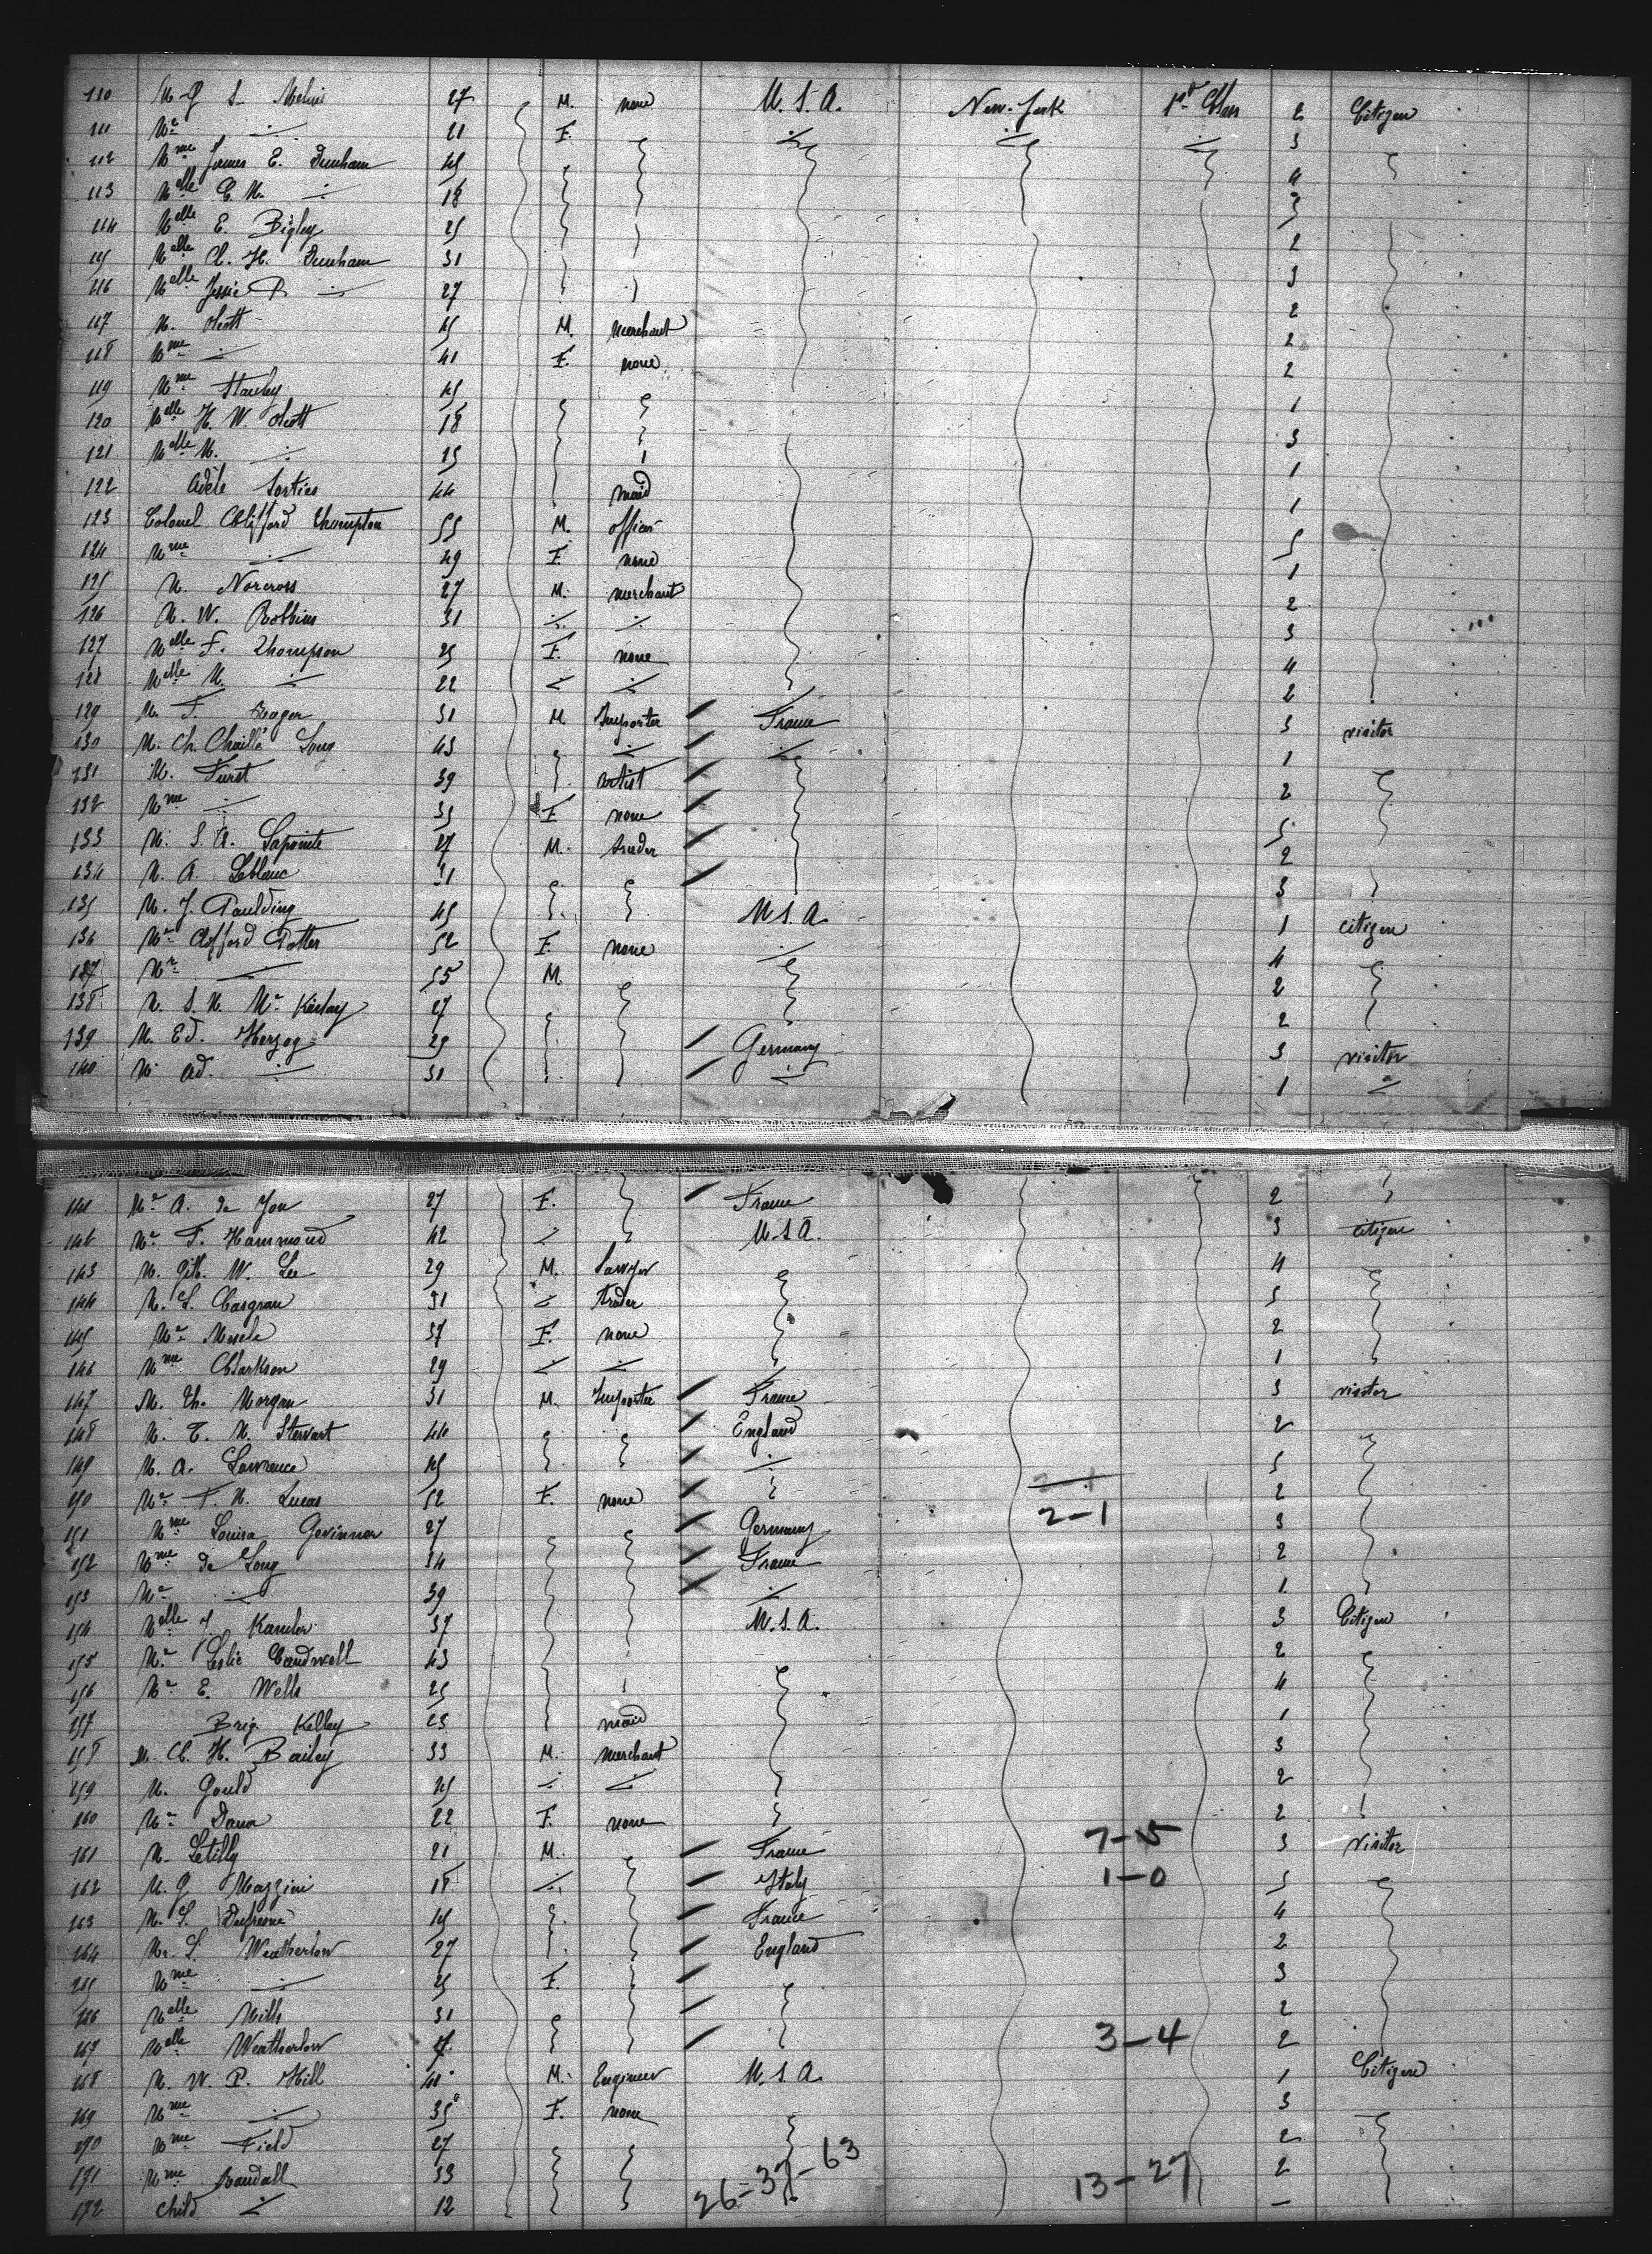 110 M. J S. Melius 27 M. none U.S.A. New-York 1st Class 2 Citizen
111 Mme 21 F. 3
112 Mme James E. Dunham 45 4
113 Melle C. M. 18 3
114 Melle E. Bigley 25 2
115 Melle C. H. Dunham 31 3
116 Melle Jessie P. 27 2
117 M. Scott 45 M. merchant 2
118 Mme 41 F. none 2
119 Mme Stanley 45 1
120 Melle H. W. Scott 18 3
121 Melle M. 15 1
122 Adèle Sorties 44 maid 1
123 Colonel Clifford Thompson 55 M. officer 5
124 Mme 49 F. none 1
125 M. Norcross 27 M. merchant 2
126 M. W. Robbins 31 3
127 Melle F. Thompson 25 F. none 4
128 Melle M. 22 2
129 M. F. 31 M Importer France 3 visitor
130 M. Ch. Chaillé Long 43 1
131 M. Furst 39 artist 2
132 Mme 35 F none 5
133 M. S. A. Lapointe 27 M. trader 2
134 M. A. Leblanc 31 3
135 M. J. Paulding 45 U.S.A. 1 citizen
136 Mrs Clifford Potter 52 F. none 4
137 Mr 55 M. 2
138 M. S. M. Mc Kinlay 27 2
139 M. Ed. Herzog 29 Germany 3 visitor
140 M. Ad. 31 1
141 Mrs A. de Jon 27 F. France 2
142 Mrs F. Hammond 42 U.S.A. 3 citizen
143 M. W. Lee 29 M. Lawyer 4
144 M. L. Casgrau 31 trader 5
145 Mrs 37 F. none 2
146 Mme Clarkson 29 1
147 M. Th. Morgan 31 M. Importer France 3 visitor
148 M. T. M. Stewart 44 England 2
149 M. A. Lawrence 45 5
150 Mrs F. M. Lucas 52 F. none 2
2-1
151 Mme Louisa Gevinner 27 Germany 3
152 Mme de Long 34 France 2
153 Mr 39 1
154 Melle J Kamler 37 U.S.A. 3 Citizen
155 Mrs Leslie Candwell 43 2
156 Mrs E. Wells 25 4
157 Brig. Kelley 23 maid 1
158 M. C. H. Bailey 33 M. merchant 3
159 M. Gould 45 2
160 Mrs Dana 22 F. none 2
7-5
161 M. Letilly 21 M. France 3 visitor
1-0
162 M. G Mazzini 18 Italy 5
163 M. L. Dufresne 45 France 4
164 Mr. L. Weatherlow 27 England 2
165 Mme 25 F. 3
166 Melle Mills 31 2
167 Melle Weatherlow 3-4 2
168 M. W. P. Hill 40 M. Engineer U.S.A. 1 Citizen
169 Mme 35 F. none 3
170 Mme Field 27 2
171 Mme Randall 33 2
26-37-63 13-27
172 child 12